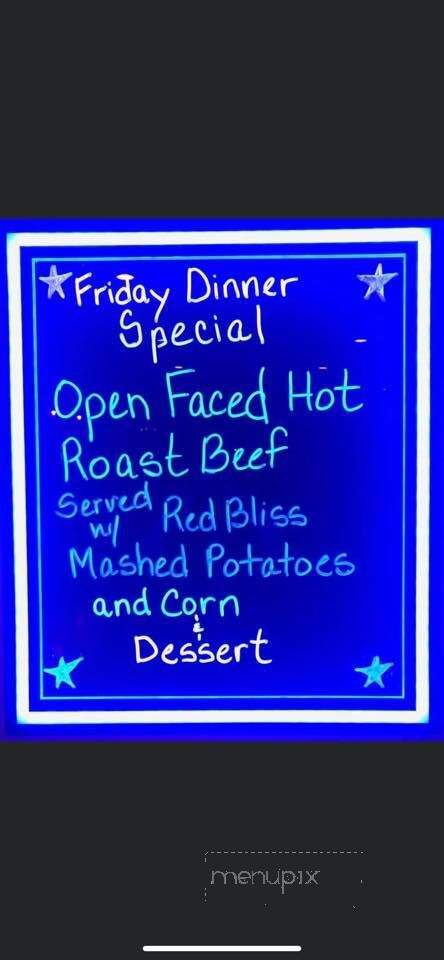 Friday Dinner
Special
Open Faced Hot
Roast Beef
Served
w/ Red Bliss
Mashed Potatoes
and Corn
&
Dessert
menupix